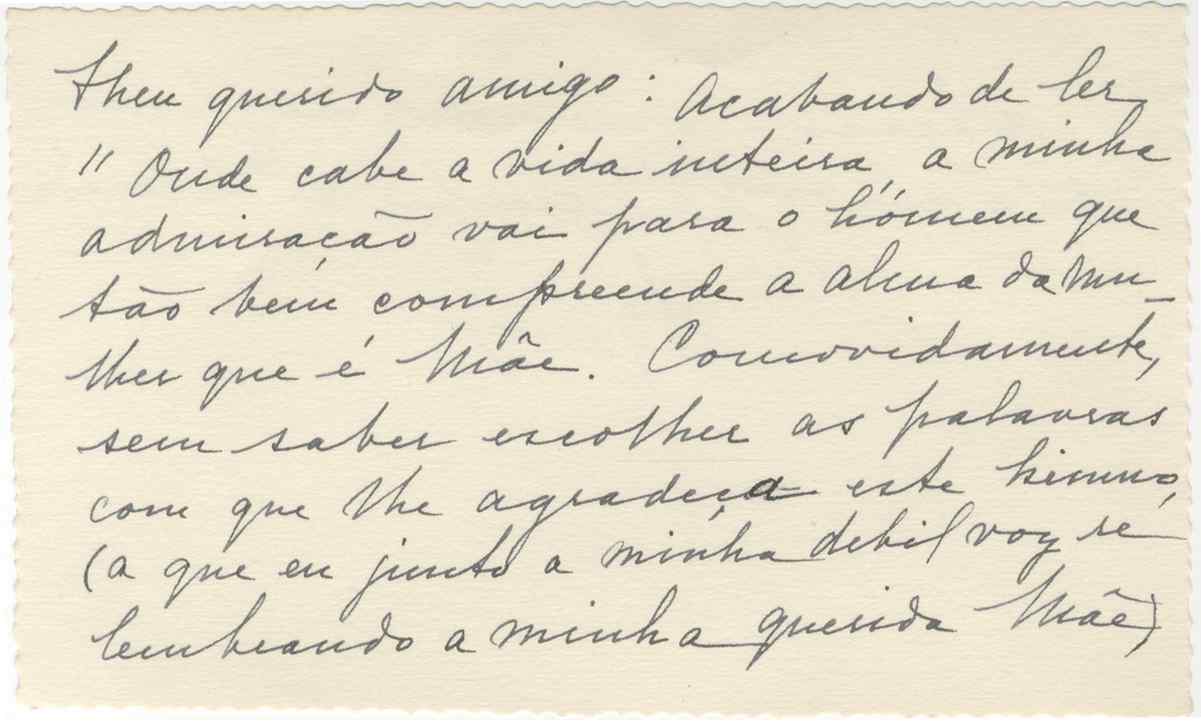 Meu querido amigo: Acabando de ler
"Onde cabe a vida inteira" a minha
admiração vai para o hómem que
tão bem compreende a alma da Mu-
lher que é Mãe. Comovidamente,
sem saber escolher as palavras
com que lhe agradeça este himno,
(a que eu junto a minha debil voz re-
lembrando a minha querida Mãe)